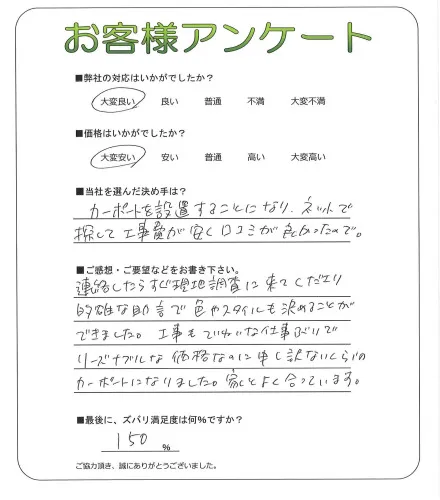 お客様アンケート
■弊社の対応はいかがでしたか?
大変良い 良い 普通 不満 大変不満
■価格はいかがでしたか?
大変安い 安い 普通 高い 大変高い
■当社を選んだ決め手は?
カーポートを設置することになり、ネットで
探して工事費が安く口コミが良かったので。
■ご感想・ご要望などをお書き下さい。
連絡したらすぐ現地調査に来てくだエリ
的確な助言で色やスタイルも決めることが
できました。工事もていねいな仕事ぶりで
リーズナブルな価格なのに申し訳ないくらいの
カーポートになりました。家とよく合っています。
■最後に、ズバリ満足度は何%ですか?
150 %
ご協力頂き、誠にありがとうございました。